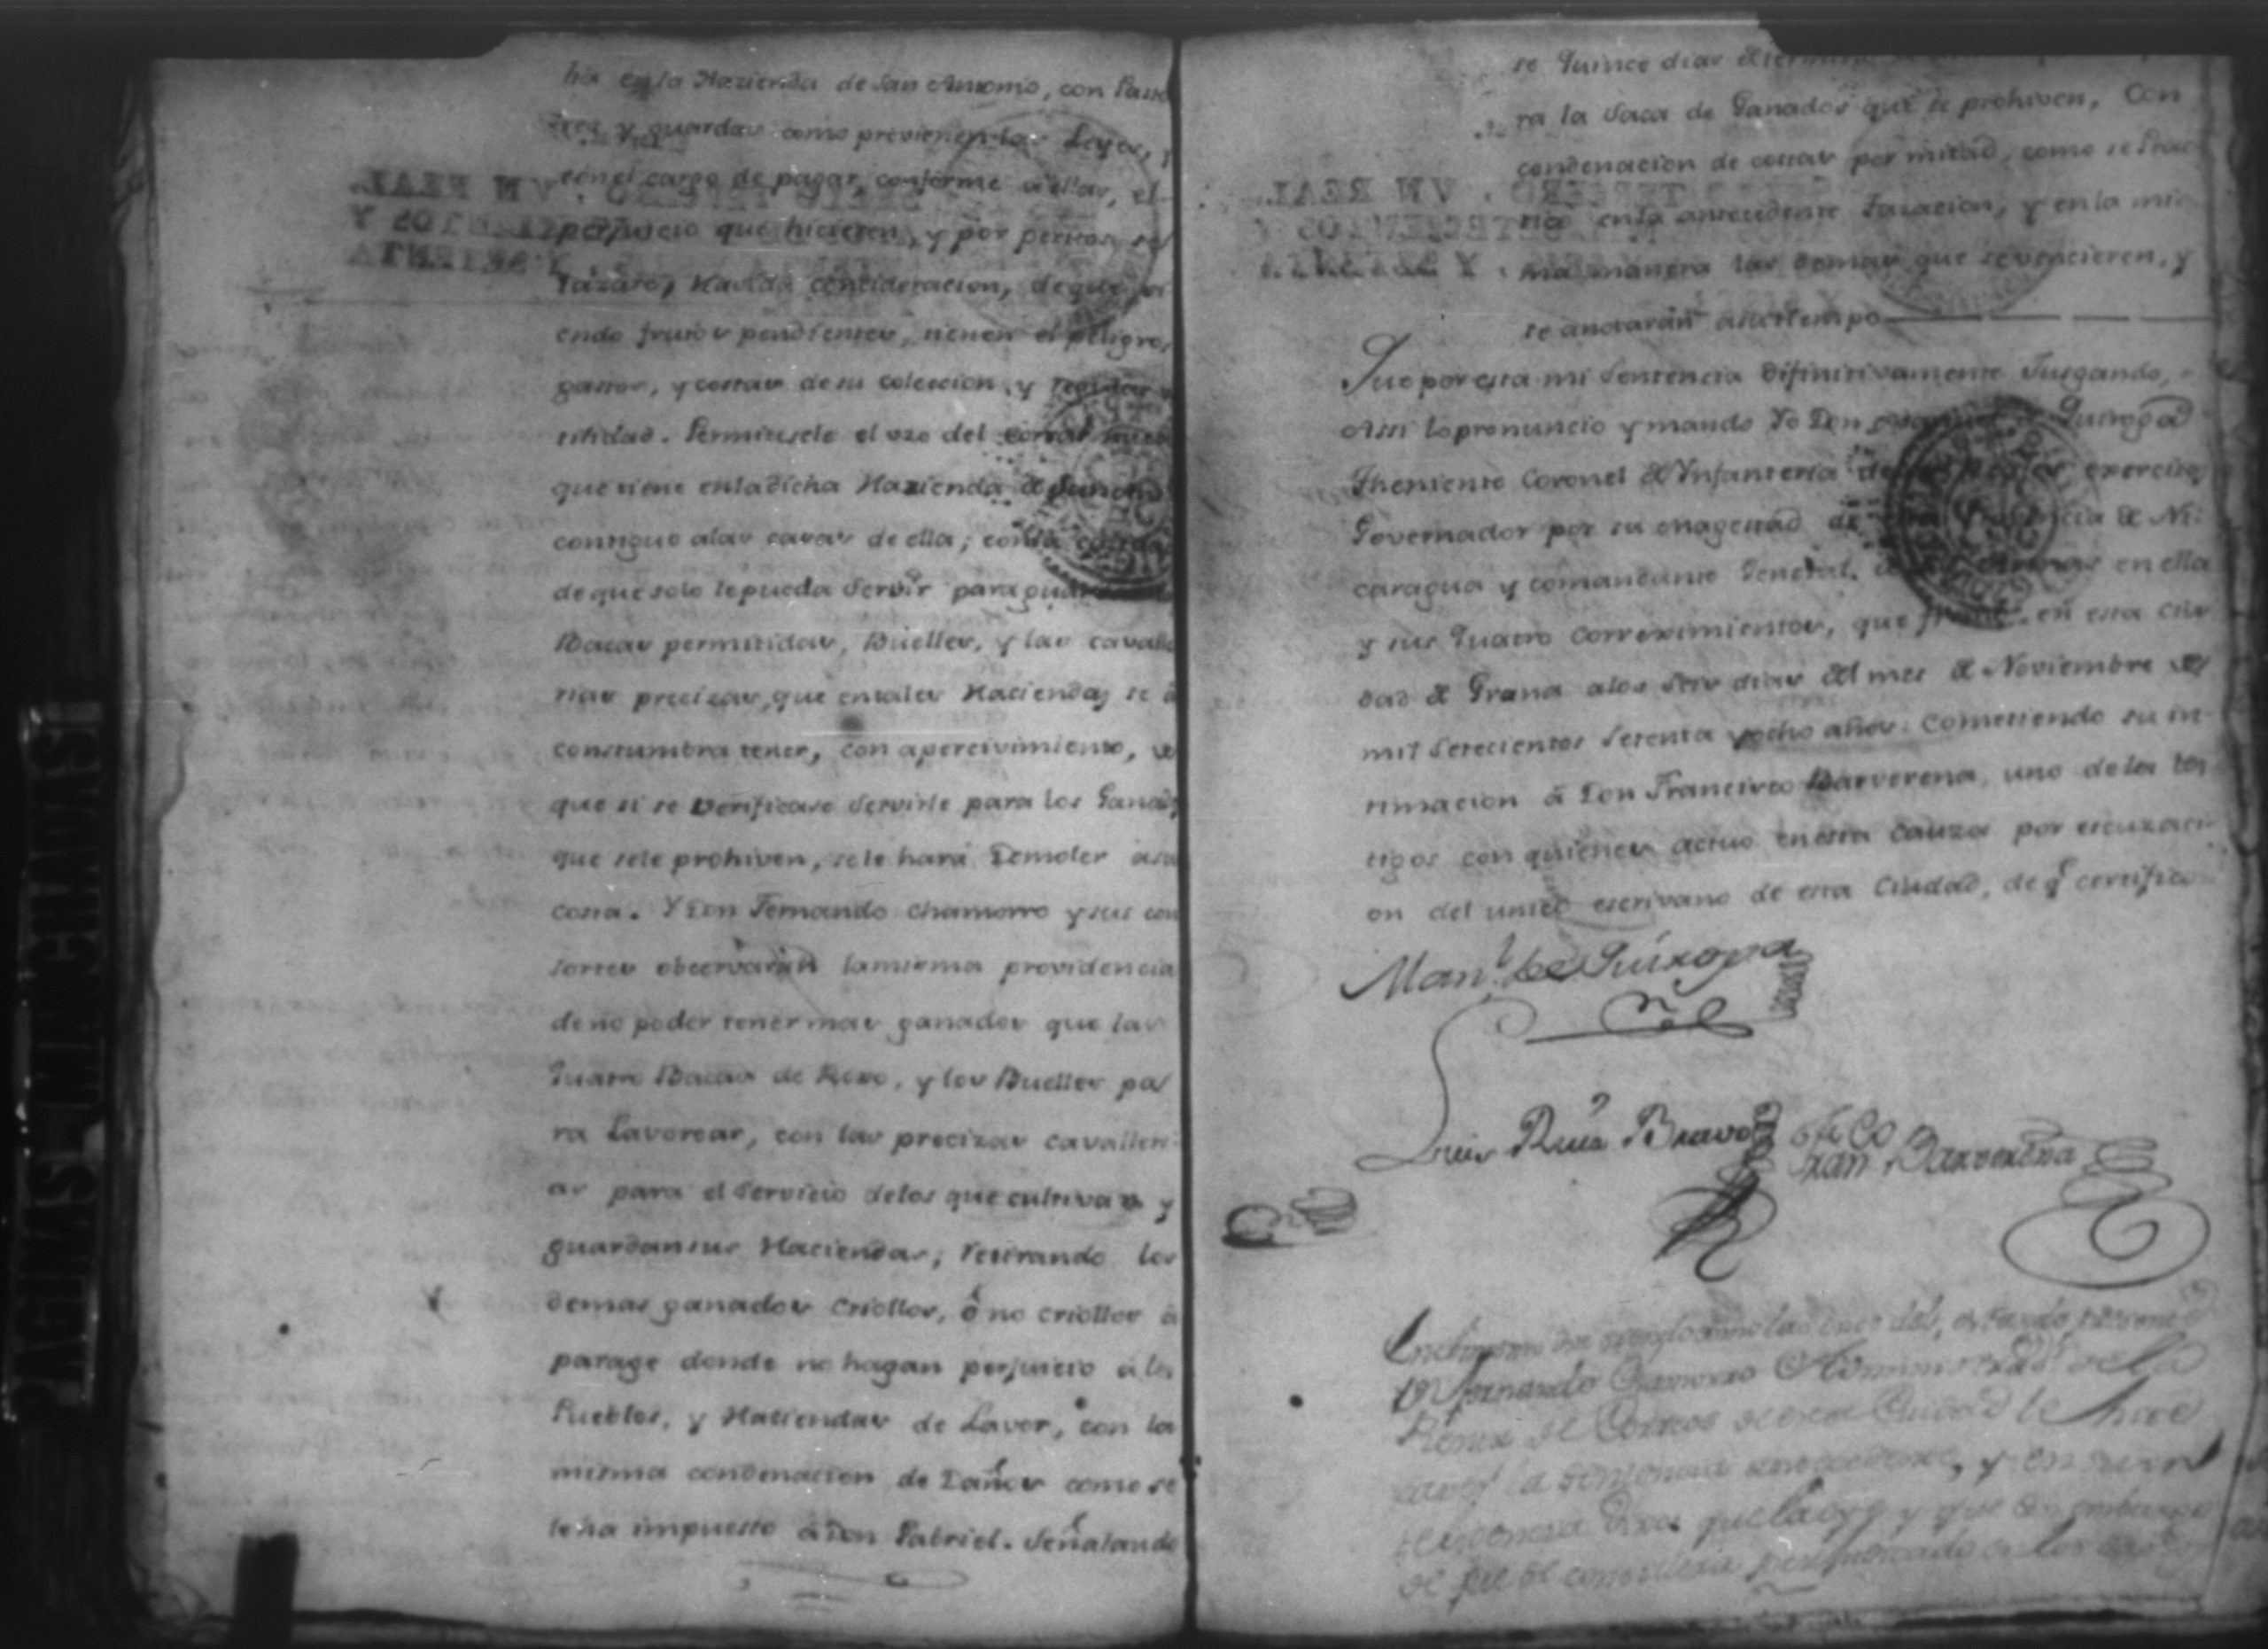 ha en la Hazienda de San Antonio, con Pasto
res y guardas como previenen las Leyes, y
con el cargo de pagar, conforme a ellas, el
perjuicio que hicieren, y por peritos se
tazare, havida consideracion, de que si
endo frutos pendientes, tienen el peligro,
gastos, y costas de su coleccion, y
tilidad. Permitesele el uzo del corral
que tiene en la dicha Hazienda de
contiguo a las casas de ella; con la
de que solo le pueda Servir para guardar
Bacas permitidas, Buelles, y las cavalle
rias precizas, que en tales Haciendas se a
constumbra tener, con apercivimiento, de
que si se verificase Servirle para los Ganados
que se le prohiven, se le hará Demoler a su
costa. Y Don Fernando Chamorro y sus con
sortes observarán la misma providencia
de no poder tener mas ganados que las
Quatro Bacas de , y los Buelles pa
ra Lavorear, con las precizas cavalleri
as para el Servicio de los que cultivan y
guardan sus Haciendas; retirando los
demas ganados Criollos, ó no criollos a
parage donde no hagan perjuicio a los
Pueblos, y Haciendas de Lavor, con la
misma condenacion de Daños como se
le ha impuesto a Don Gabriel. Señalando
se Quince dias de termino
ra la Saca de Ganados que se prohiven, Con
condenacion de costas por mitad, como se Prac
tica en la antecedente tazacion, y en la mis
ma manera las demas que se vencieren, y
se anotarán a su tiempo
Que por esta mi Sentencia difinitivamente Jusgando,
Assi lo pronuncio y mando Yo Don Manuel de Quiroga
Theniente Coronel de Ynfanteria de los exercitos
Governador por su Magestad de esta Provincia de Ni
caragua y comandante General de las Armas en ella
y sus Quatro Correximientos, que firme en esta Ciu
dad de Grana a los Seis dias del mes de Noviembre de
mil Setecientos Setenta y ocho años: Cometiendo su in
timacion á Don Francisco Barverena, uno de los tes
tigos con quienes actuo en esta Cauza por escuzaci
on del unico escrivano de esta Ciudad, de q.e certifico
Man.l de Quiroga
Luis Ruis Bravo
Fran.co Barverena
En el mismo dia
D.n Fernando Chamorro Administrad.r de la
Renta de Correos de esta Ciudad le hice
saver la Sentencia antecedente, y en su in
teligencia Dixo: que la oye y que sin embargo
de que se considera perjudicado en los